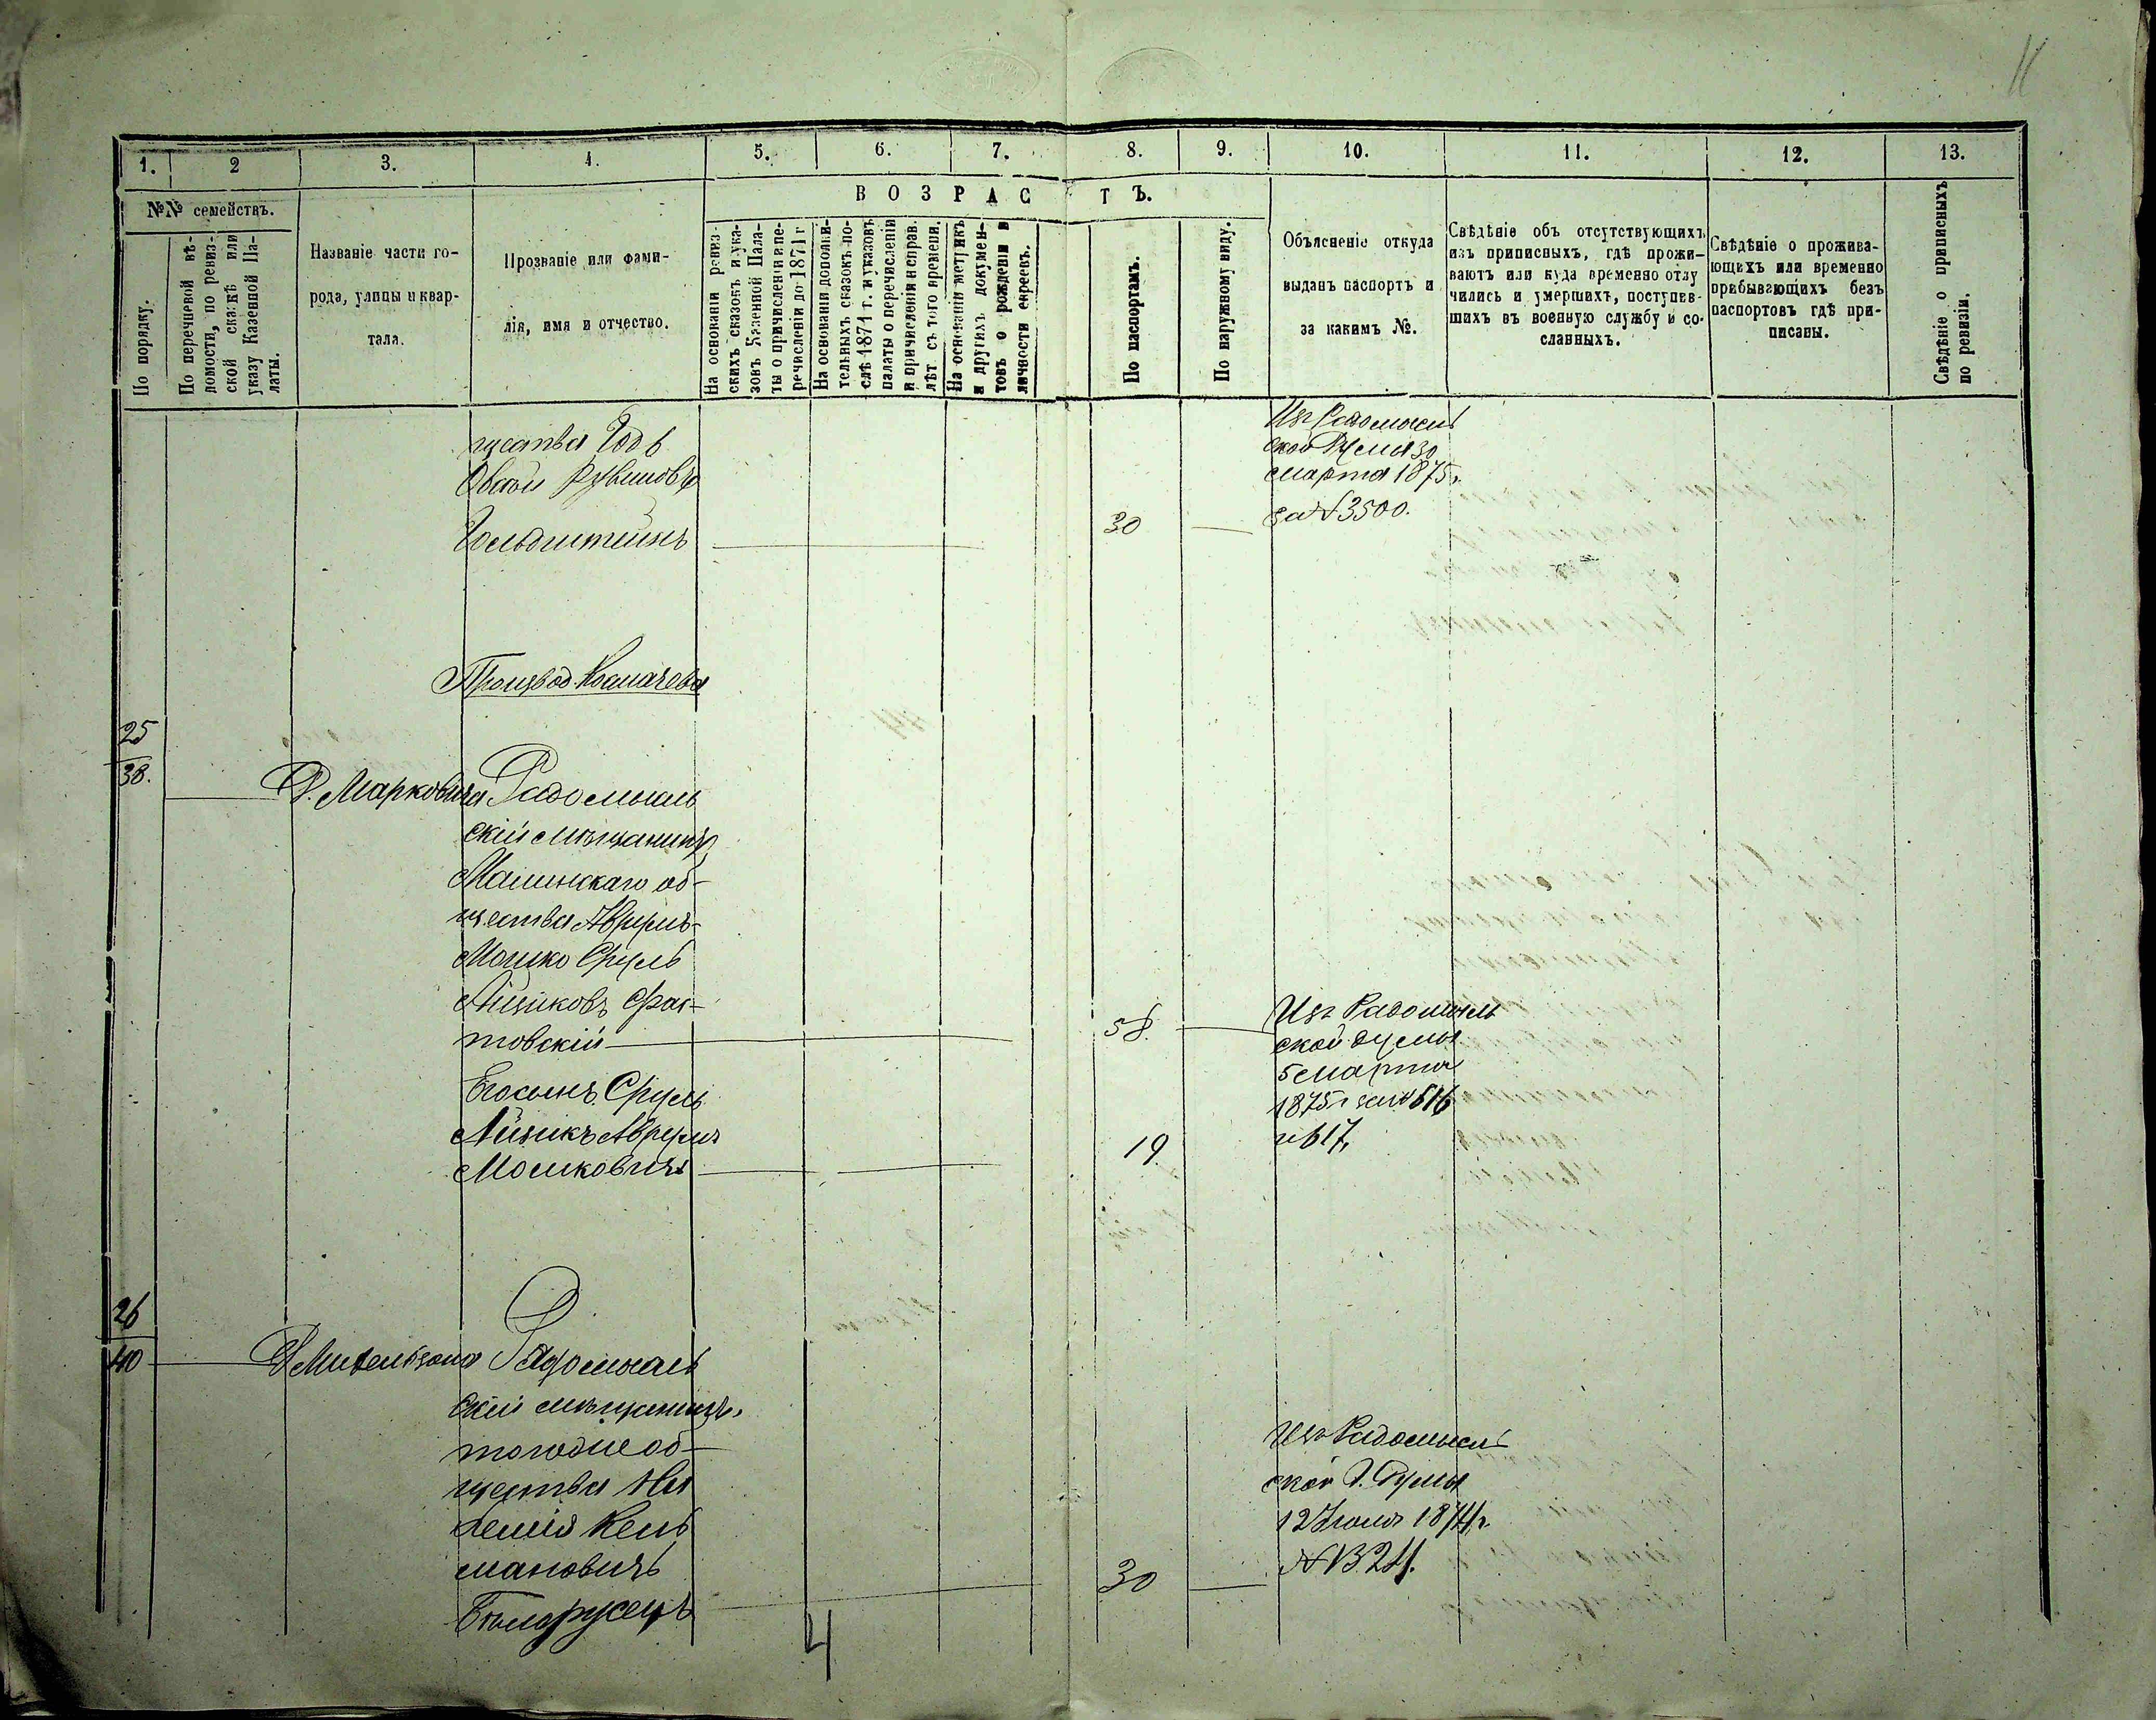 11
1. 2 3. 4. 5. 6. 7. 8. 9. 10. 11. 12. 13.
№№ семействъ.
По порядку.
По перечневой вѣ-
домости, по ревиз-
ской сказкѣ или
указу Казенной Па-
латы.
Названіе части го-
рода, улицы и квар-
тала.
Прозваніе или фами-
лія, имя и отчество.
ВОЗРАСТЪ.
На основаніи ревиз-
скихъ сказокъ и ука-
зовъ Казенной Пала-
ты о причисленіи и пе-
речисленіи до 1871 г
На основаніи дополни-
тельныхъ сказокъ по-
слѣ 1871 г. и указовъ
палаты о перечисленіи
и причисленіи и справ.
лѣт. съ того времени.
На основаніи метрикъ
и другихъ докумен-
товъ о рожденіи и
личности евреевъ.
По паспортамъ.
По наружному виду.
Объясненіе откуда
выданъ паспортъ и
за какимъ №.
Свѣдѣніе объ отсутствующихъ
изъ приписныхъ, гдѣ прожи-
ваютъ или куда временно отлу
чились и умершихъ, поступив-
шихъ въ военную службу и со-
сланныхъ.
Свѣдѣніе о прожива-
ющихъ или временно
прибывающихъ безъ
паспортовъ гдѣ при-
писаны.
Свѣдѣніе о приписныхъ
по ревизіи.
щества Годъ
Овсѣй Рувиновъ
Гольдштейнъ
30
Изъ Радомысль
ской Думы 30
марта 1875 г.
за № 3500.
25
38.
Д. Марковича
Радомысль
скій мѣщанинъ
Малинскаго об-
щества Аврумъ-
Мошко Сруль
Айзиковъ
товскій
58.
Изъ Радомысль
ской думы
5 марта
1875 г за № 616
и 617,
Его сынъ Сруль
Айзикъ Аврумъ
Мошковичъ
19.
26
40
Радомысль
скій мѣщанинъ,
того же об-
щества
мановичъ
Бѣлорусецъ
30
Изъ Радомысль
ской Г. Думы
12 Іюля 1874 г.
4